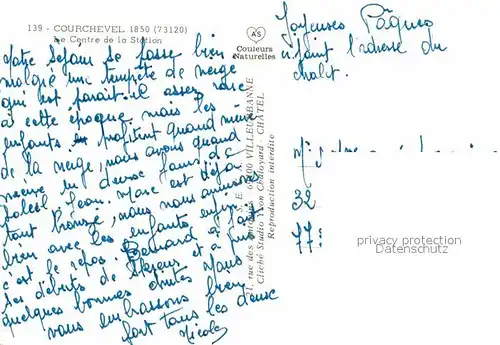 139 - COURCHEVEL 1850 (73120)
Le Centre de la Station
AS
Couleurs
Naturelles
Notre séjour se passe bien
malgré une tempête de neige
qui est paraît-il assez rare
à cette époque mais les
enfants en profitent quand même
de la neige, nous avons quand
même eu deux jours de
soleil Jean. Marc est déjà
tout bronzé, nous nous amusons
bien avec les enfants enfin
c'est le repos. Bernard a fait
ses débuts de skieur et a
quelques bonnes chutes Nous
vous embrassons bien
fort tous les deux
Nicole
Joyeuses Pâques
l'adresse du
chalet.
21, rue des 69100 VILLEURBANNE
Cliché Studio Yvon Chaloyard - CHÂTEL
Reproduction interdite
32
77
privacy protection
Datenschutz